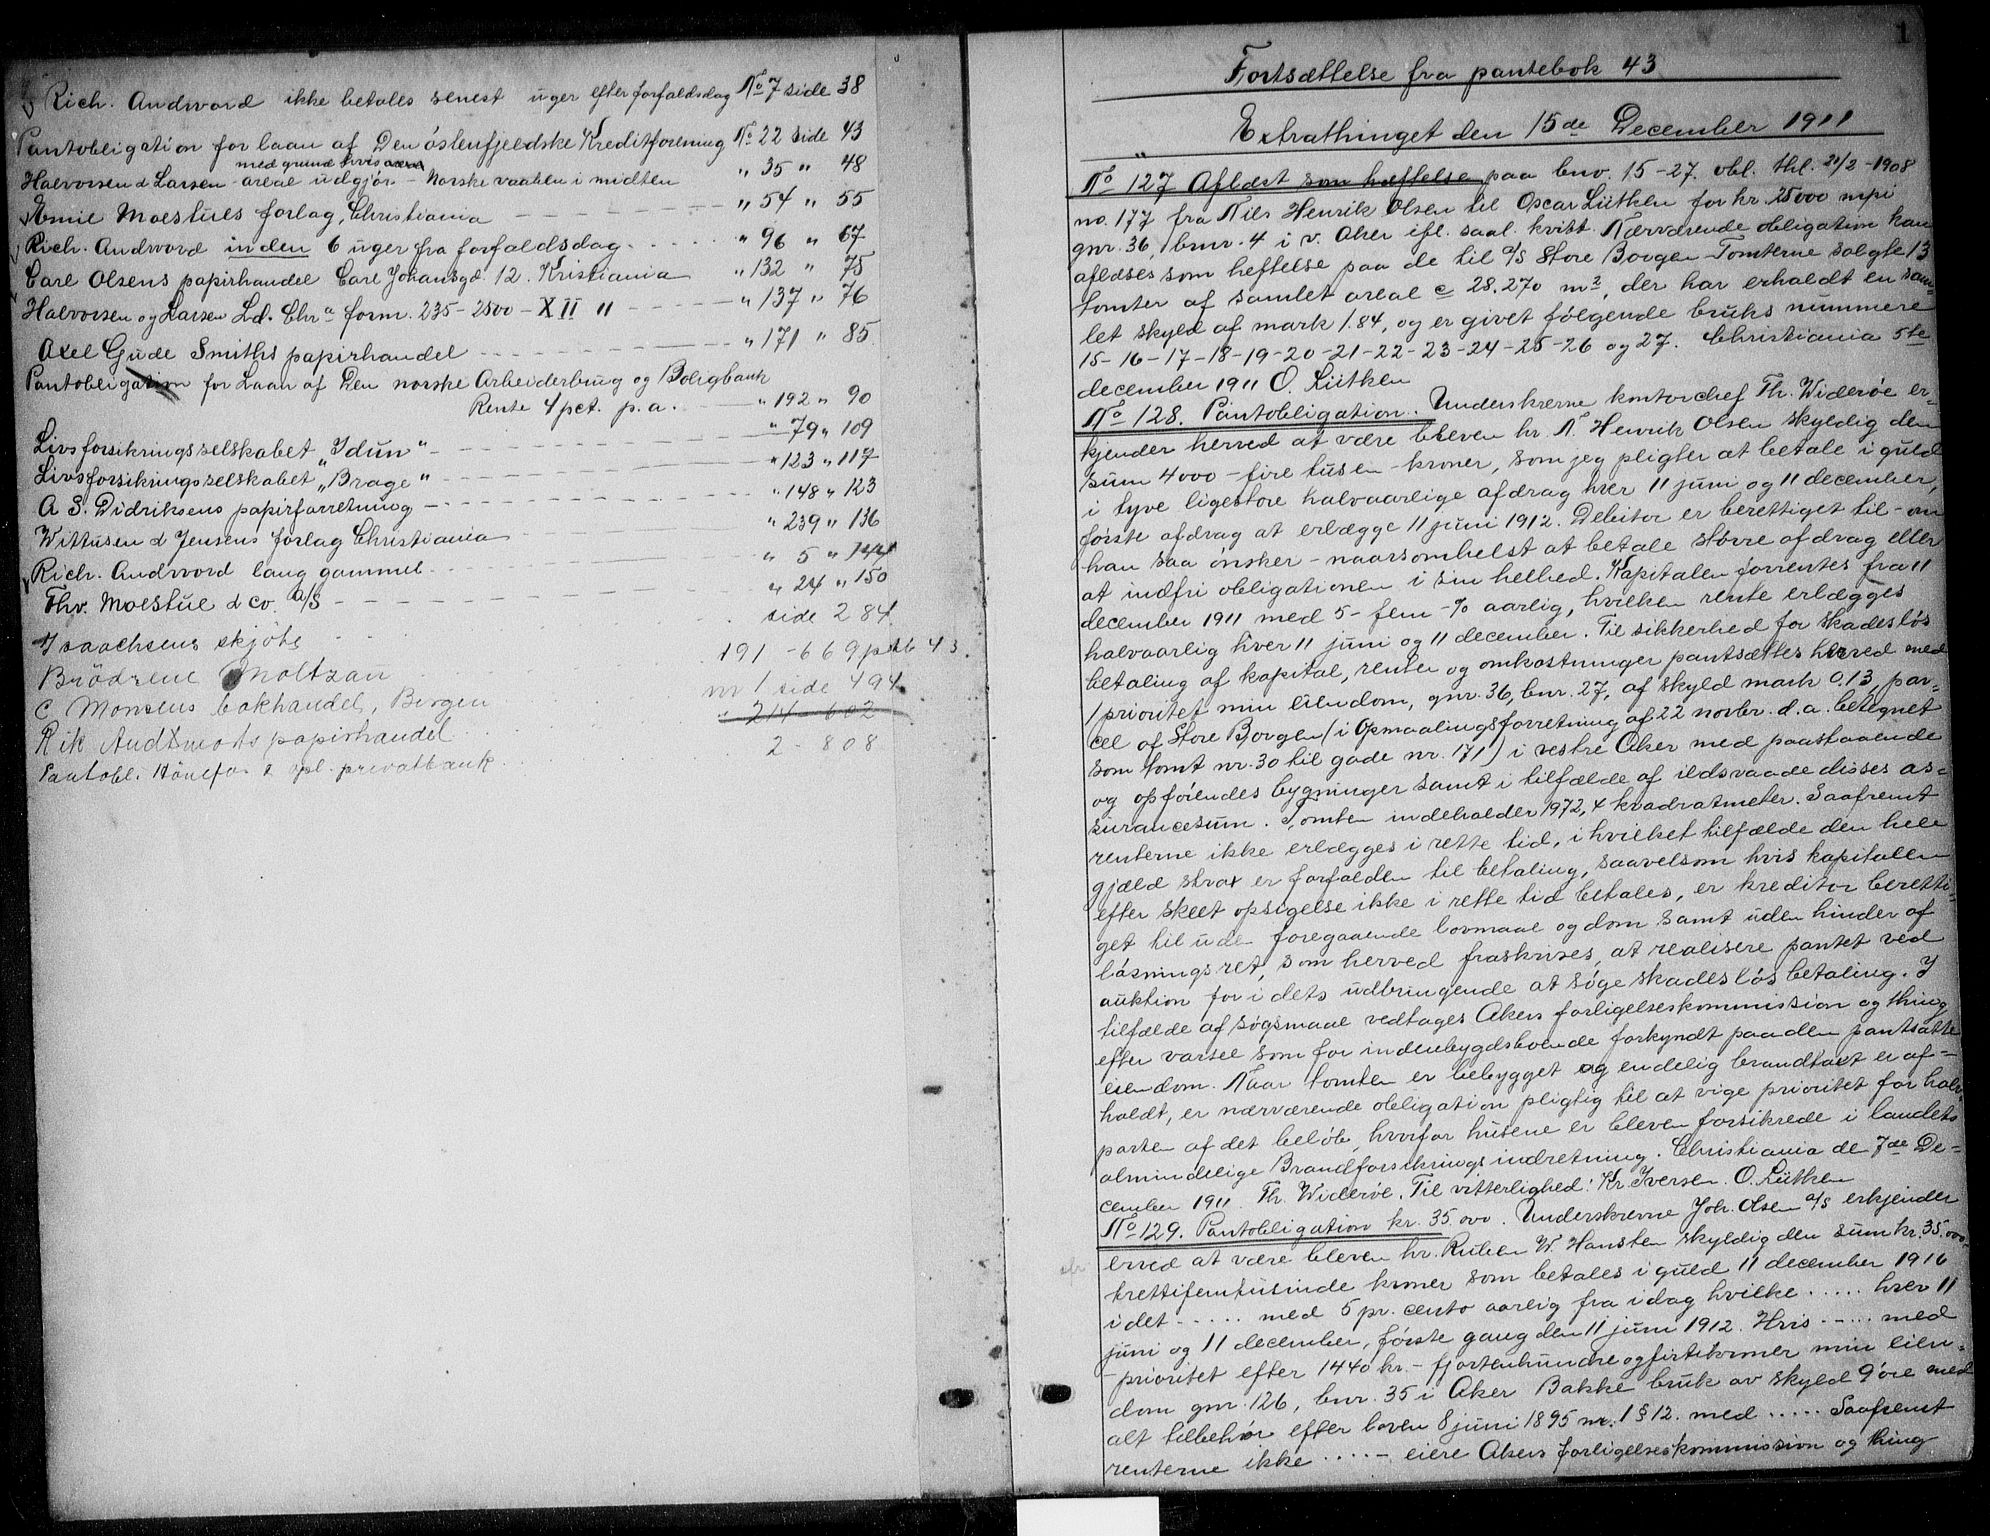 Rich. Andvord ikke betales senest uger efter forfaldsdag No 7 side 38
Pantobligation for laan af Den östenfjeldske Kreditforening No 22 side 43
med grund hvis areal
Halvorsen & Larsen - areal udgjör - Norske vaaben i midten " 35 " 48
Emil Moestues forlag, Christiania " 54 " 55
Rich. Andvord inden 6 uger fra forfaldsdag " 96 " 67
Carl Olsens papirhandel Carl Johansgd 12. Kristiania " 132 " 75
Halvorsen og Larsen Ld. Chra form. 235 - 2500 - XII 11 " 137 " 76
Axel Gude Smiths papirhandel " 171 " 85
Pantobligation for Laan af Den norske Arbeiderbrug og Boligbank
Rente 4 pct. p.a. " 192 " 90
Livsforsikringsselskabet "Idun" " 79 " 109
Livsforsikringsselskabet "Brage" " 123 " 117
A S. Didriksens papirforretning " 148 " 123
Wittusen & Jensens forlag Christiania " 239 " 136
Rich. Andvord lang gammel " 5 " 144
Thv. Moestue & Co. A/S " 24 " 150
Isaachsens skjöte side 284
Brödrene Moltzau 191 - 669 pktb 43
C Monsens bokhandel, Bergen nr 1 side 494
Rik Andtmots papirhandel " 214 - 602
Pantobl. Hönefos & opl. privatbank 2 - 808
1
Fortsættelse fra pantebok 43
Extrathinget den 15de December 1911
No 127 Aflæst som heftelse paa bnr. 15-27. obl. thl. 21/2 - 1908
no. 177 fra Nils Henrik Olsen til Oscar Lütken for kr. 25000 mpi
gnr. 36, bnr. 4 i v. Aker ifl. saal. kvitt. Nærværende obligation kan
aflæses som heftelse paa de til A/S Store Borgen-Tomterne solgte 13
tomter af samlet areal c 28.270 m2, der har erholdt en sam-
let skyld af mark 1.84, og er givet følgende bruks nummere
15-16-17-18-19-20-21-22-23-24-25-26 og 27. Christiania 5te
december 1911 O. Lütken
No 128. Pantobligation. Underskrevne kontorchef Th. Widerøe er-
kjender herved at være bleven hr. N. Henrik Olsen skyldig den
sum 4000 - fire tusen - kroner, som jeg pligter at betale i guld
i tyve ligestore halvaarlige afdrag hver 11 juni og 11 december,
første afdrag at erlægge 11 juni 1912. Debitor er berettiget til - om
han saa ønsker - naarsomhelst at betale større afdrag eller
at indfri obligationen i sin helhed. Kapitalen forrentes fra 11
december 1911 med 5 - fem - % aarlig, hvilken rente erlægges
halvaarlig hver 11 juni og 11 december. Til sikkerhed for skadesløs
betaling af kapital, renter og omkostninger pantsættes herved med
1 prioritet min eiendom, gnr. 36, bnr. 27, af skyld mark 0.13, par-
cel af Store Borgen (i Opmaalingsforretning af 22 novbr. d.a. betegnet
som tomt nr. 30 til gade nr. 171) i vestre Aker med paastaaende
og opførendes bygninger samt i tilfælde af ildsvaade disses as-
surancesum. Tomten indeholder 1972,4 kvadratmeter. Saafremt
renterne ikke erlægges i rette tid, i hvilket tilfælde den hele
gjæld strax er forfalden til betaling, saavelsom hvis kapitalen
efter skeet opsigelse ikke i rette tid betales, er kreditor beretti-
get til uden foregaaende lovmaal og dom samt uden hinder af
løsningsret, som herved fraskrives, at realisere pantet ved
auktion for i dets udbringende at søge skadesløs betaling. I
tilfælde af søgsmaal vedtages Akers forligelseskommission og thing
efter varsel som for indenbygdsboende forkyndt paa den pantsatte
eiendom. Naar tomten er bebygget og endelig brandtaxt er af-
holdt, er nærværende obligation pligtig til at vige prioritet for halv-
parten af det beløb, hvorfor husene er bleven forsikrede i landets
almindelige Brandforsikringsindretning. Christiania de 7de De-
cember 1911 Th. Widerøe. Til vitterlighed: Kr. Iversen. O. Lütken
No 129. Pantobligation kr. 35.000. Underskrevne Joh. Olsen A/S erkjender
erved at være bleven hr. Ruben W. Hansten skyldig den sum kr. 35.000-
trettifemtusinde kroner som betales i guld 11 december 1916
i det ..... med 5 pr. cento aarlig fra idag hvilke ..... hver 11
juni og 11 december, første gang den 11 juni 1912. Hvis ..... med
- prioritet efter 1440 kr - fjortenhundreogfirtikroner min eien-
dom gnr. 126, bnr. 35 i Aker Bakke bruk av skyld 9 øre med
alt tilbehör efter loven 8 juni 1895 nr. 1 § 12. med ..... Saafremt
renterne ikke ..... - eiere Akers forligelseskommission og thing